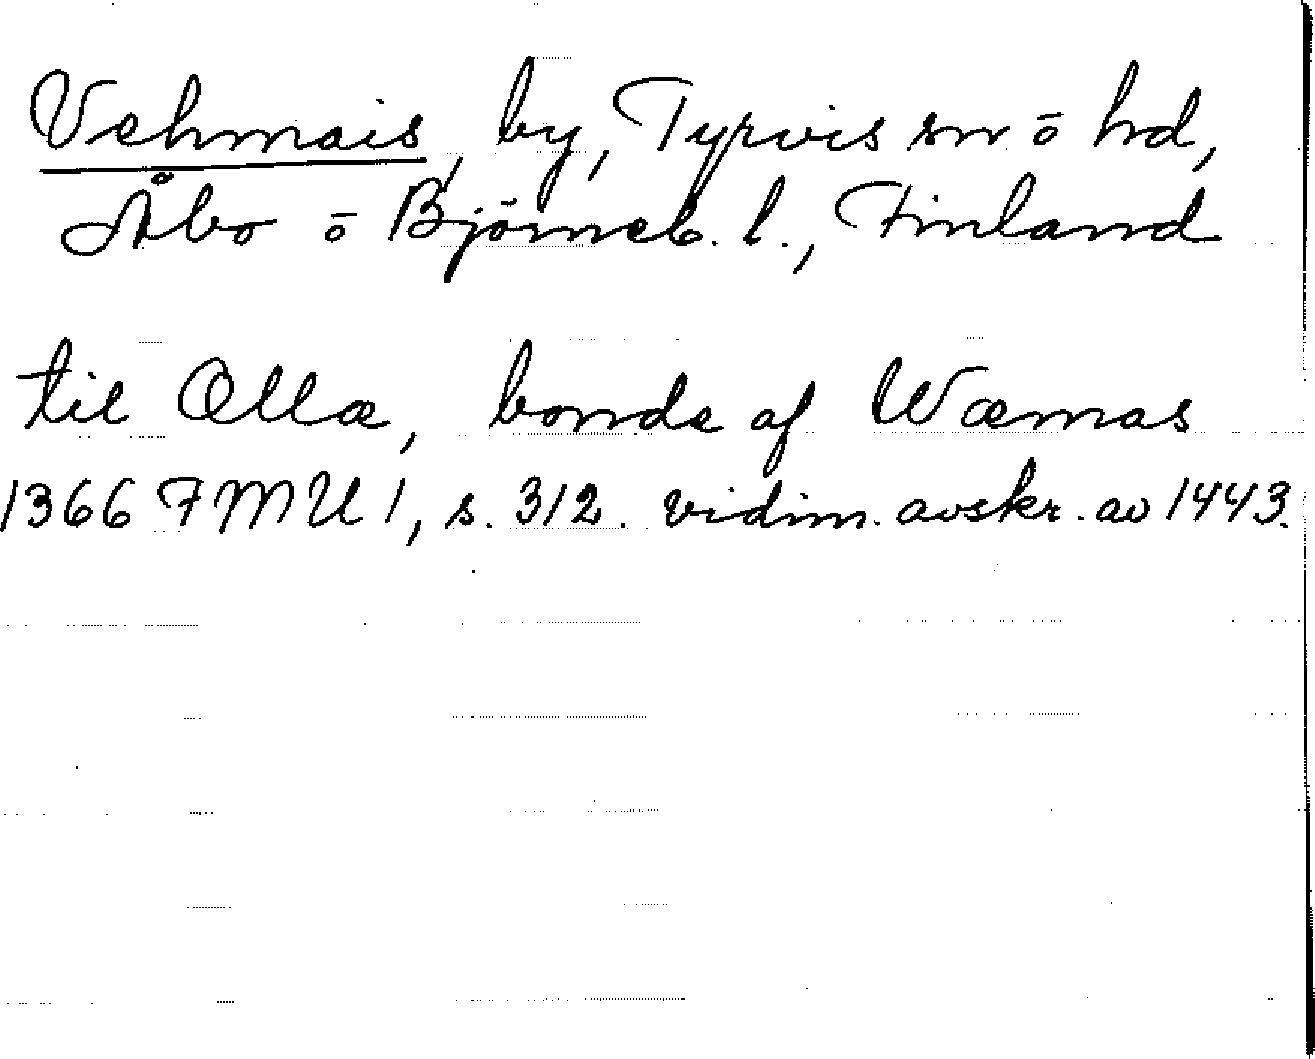 Vehmais, by, Tyrvis sn ō hd,
Åbo ō Björneb. l., Finland
til Ollæ, bonde af Wæmas
1366 FMU 1, s. 312. vidim. avskr. av 1443.